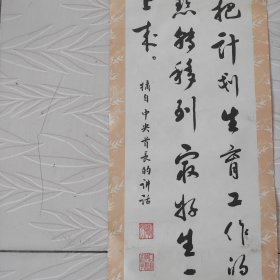 把计划生育工作的
点转移到最好生一
上来。
摘自中央首长的讲话